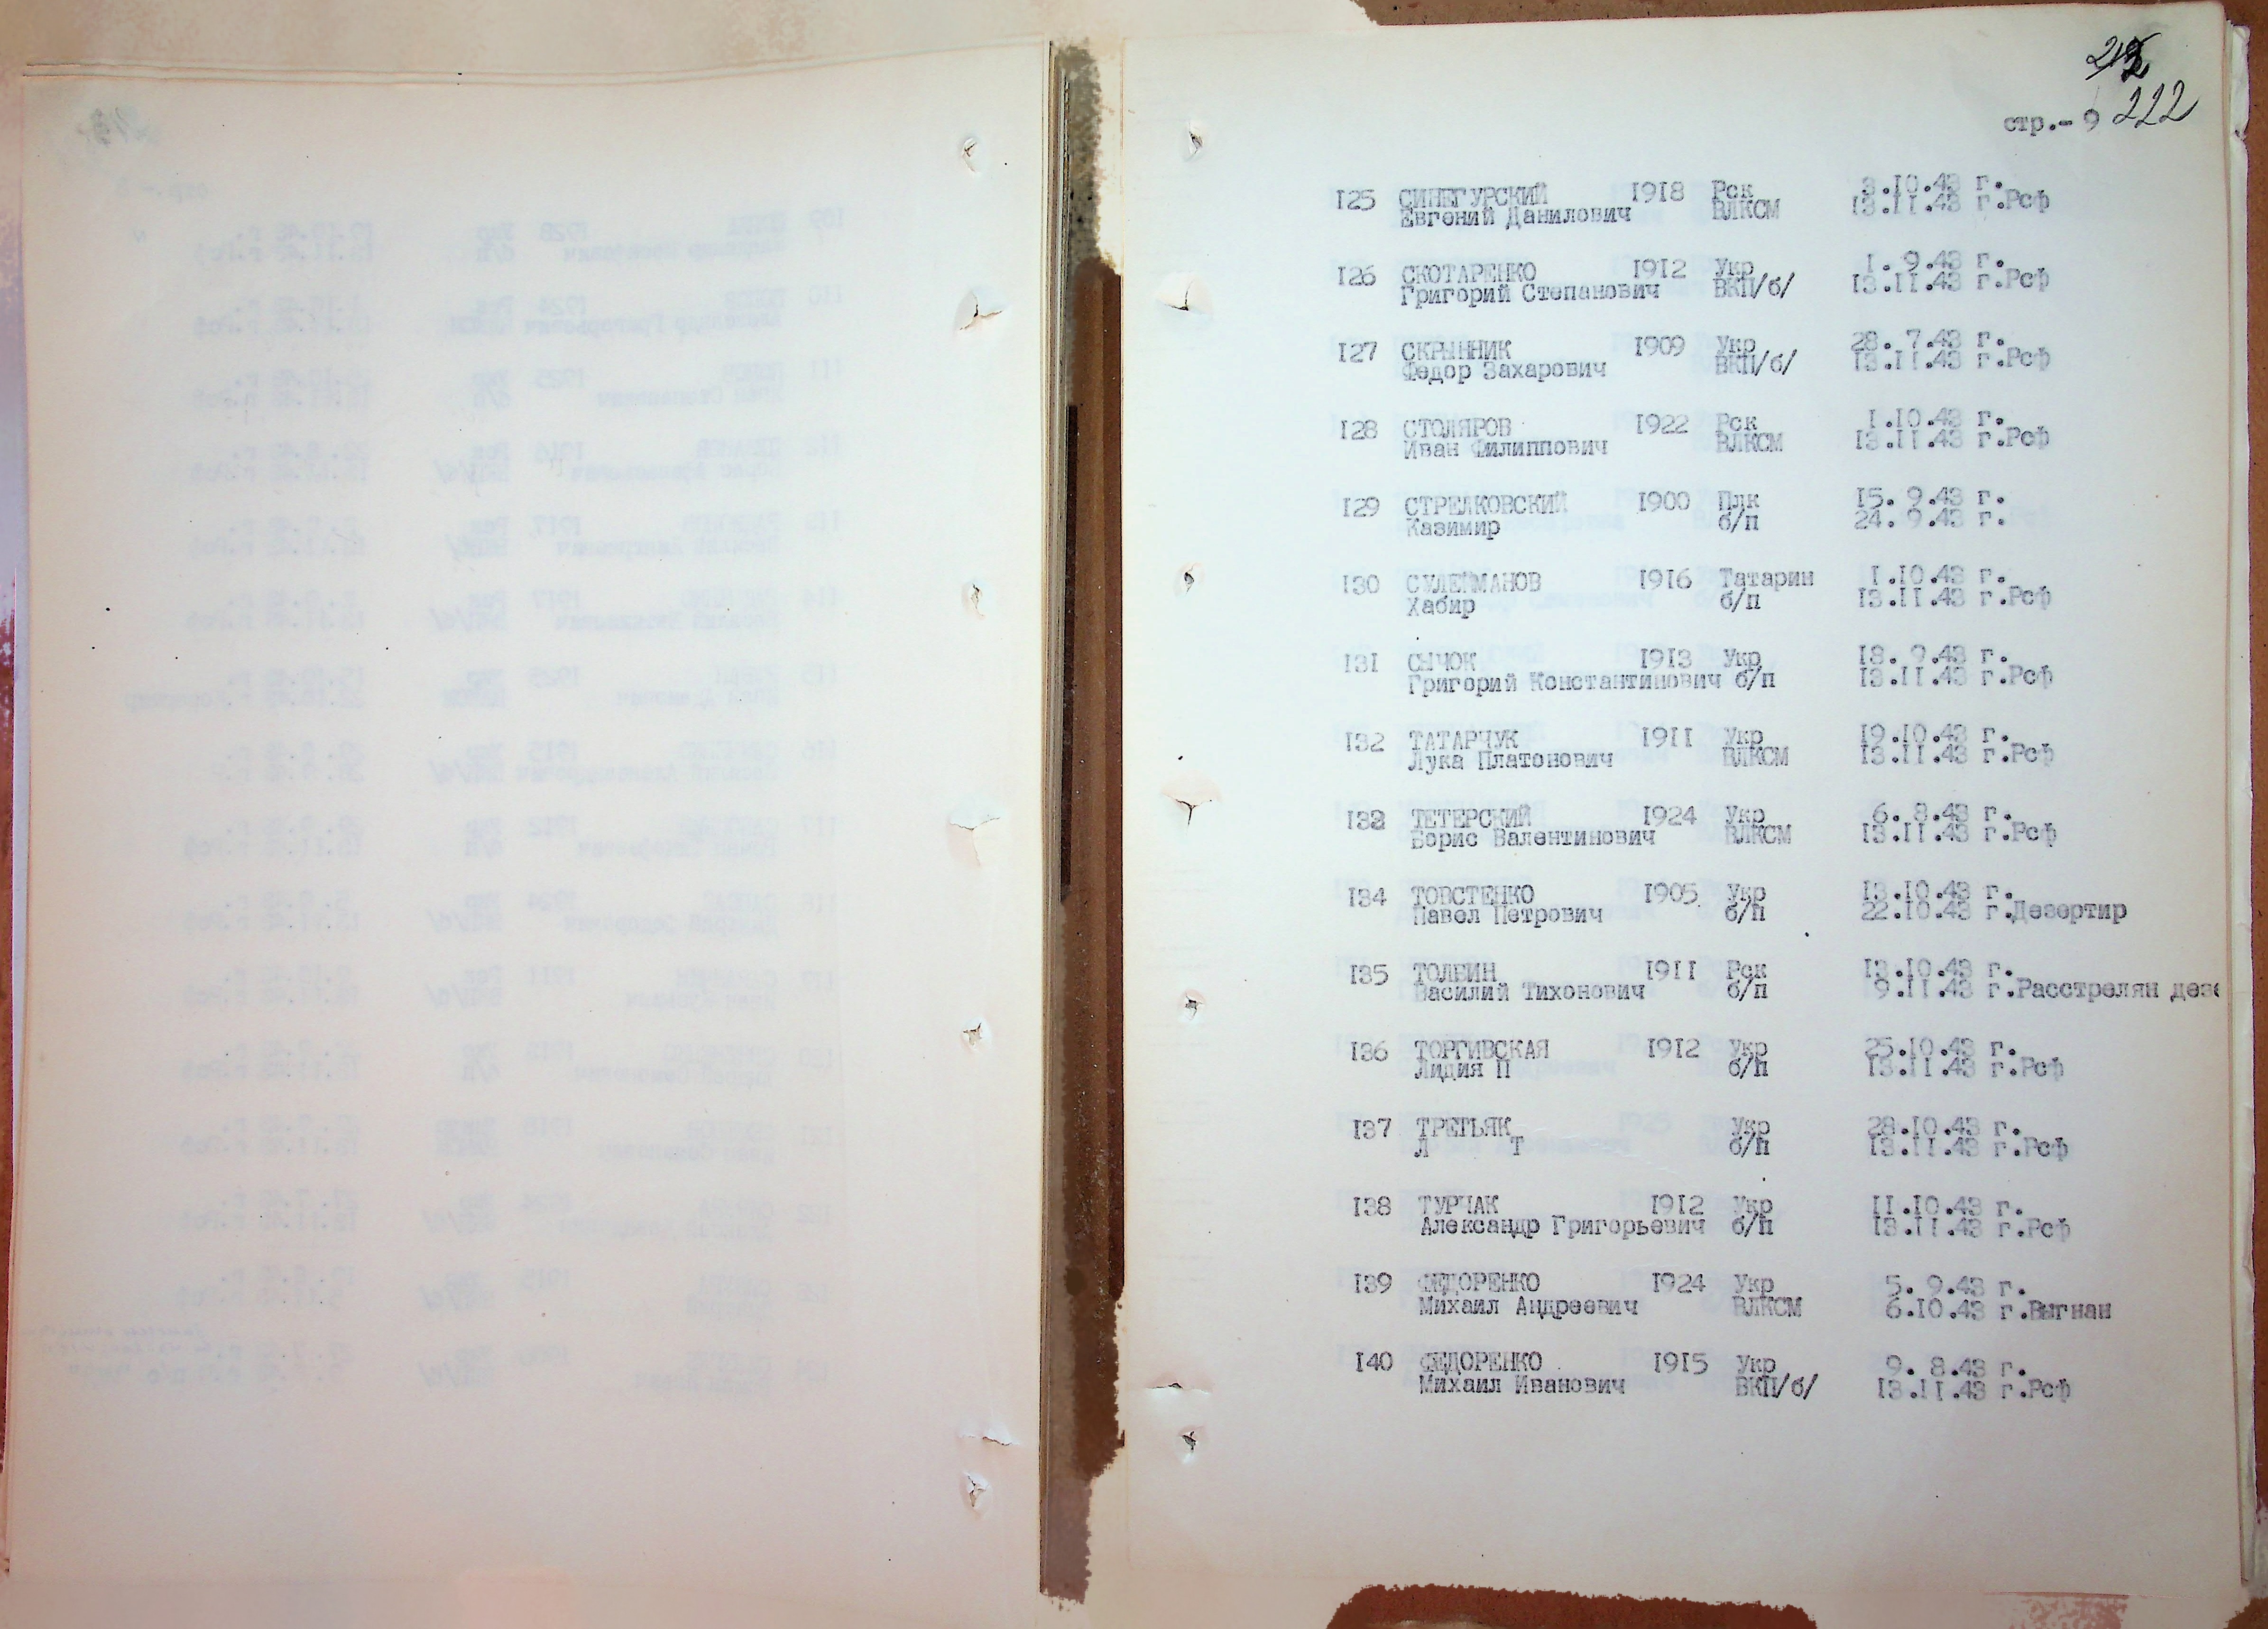 222
стр.- 9
125 СИНЕГУРСКИЙ 1918 Рск 3.10.43 г.
Евгений Данилович ВЛКСМ 13.11.43 г.Рсф
126 СКОТАРЕНКО 1912 Укр 1. 9.43 г.
Григорий Степанович ВКП/б/ 13.11.43 г.Рсф
127 СКРЫННИК 1909 Укр 28. 7.43 г.
Федор Захарович ВКП/б/ 13.11.43 г.Рсф
128 СТОЛЯРОВ 1922 Рск 1.10.43 г.
Иван Филиппович ВЛКСМ 13.11.43 г.Рсф
129 СТРЕЛКОВСКИЙ 1900 Плк 15. 9.43 г.
Казимир б/п 24. 9.43 г.
130 СУЛЕЙМАНОВ 1916 Татарин 1.10.43 г.
Хабир б/п 13.11.43 г.Рсф
131 СЫЧОК 1913 Укр 18. 9.43 г.
Григорий Константинович б/п 13.11.43 г.Рсф
132 ТАТАРЧУК 1911 Укр 19.10.43 г.
Лука Платонович ВЛКСМ 13.11.43 г.Рсф
133 ТЕТЕРСКИЙ 1924 Укр 6. 8.43 г.
Борис Валентинович ВЛКСМ 13.11.43 г.Рсф
134 ТОВСТЕНКО 1905 Укр 13.10.43 г.
Павел Петрович б/п 22.10.43 г.Дезертир
135 ТОЛБИН 1911 Рск 13.10.43 г.
Василий Тихонович б/п 9.11.43 г.Расстрелян дезе
136 ТОРГИВСКАЯ 1912 Укр 25.10.43 г.
Лидия П б/п 13.11.43 г.Рсф
137 ТРЕТЬЯК Укр 28.10.43 г.
Л Т б/п 13.11.43 г.Рсф
138 ТУРЧАК 1912 Укр 11.10.43 г.
Александр Григорьевич б/п 13.11.43 г.Рсф
139 ФЕДОРЕНКО 1924 Укр 5. 9.43 г.
Михаил Андреевич ВЛКСМ 6.10.43 г.Выгнан
140 ФЕДОРЕНКО 1915 Укр 9. 8.43 г.
Михаил Иванович ВКП/б/ 13.11.43 г.Рсф